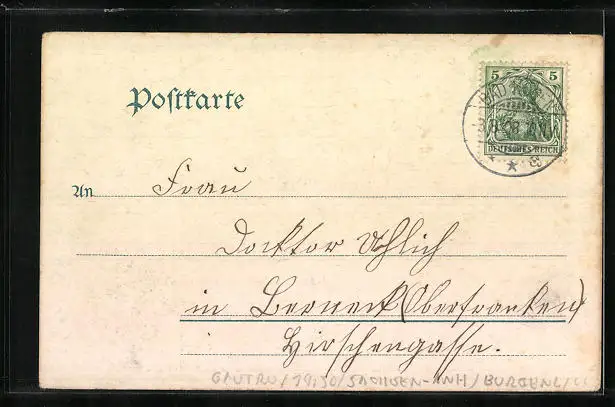 Postkarte
5 5
DEUTSCHES REICH
BAD
An Frau
Docktor Uhlich
in Berneck (Oberfranken)
Hirschengasse.
/ 19,50 / SACHSEN-ANH / BURGENL /